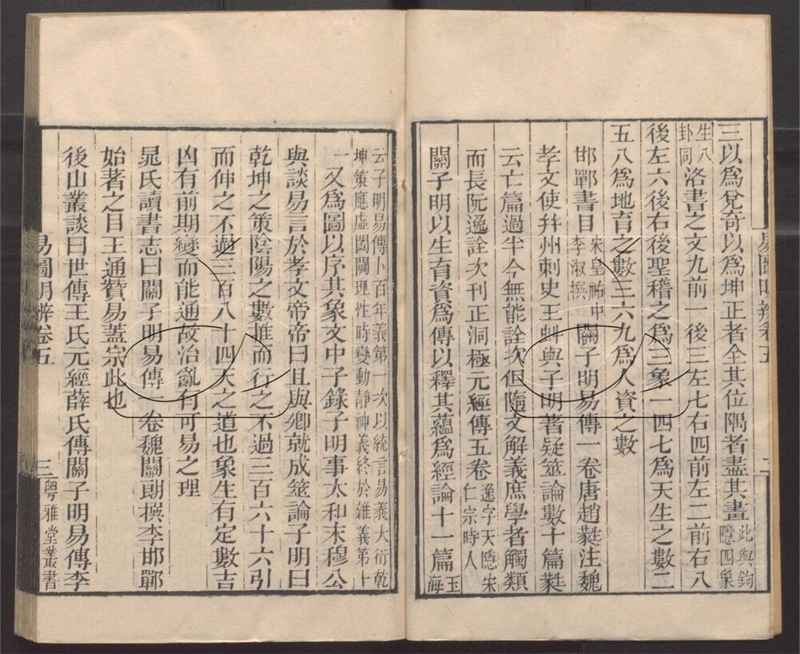 三以為兌奇以為坤正者全其位隅者盡其畫此與鉤隱四象
生八卦同洛書之文九前一後三左七右四前左二前右八
後左六後右後聖稽之為三象一四七為天生之數二
五八為地育之數三六九為人資之數
邯鄲書目宋皇祐中李淑撰關子明易傳一卷唐趙蕤注魏
孝文使并州刺史王虬與子明著疑筮論數十篇蕤
云亡篇過半今無能詮次但隨文解義庶學者觸類
而長阮逸詮次刊正洞極元經傳五卷逸字天隱宋仁宗時人
關子明以生育資為傳以釋其蘊為經論十一篇玉海
易圖明辨卷五
二
云子明易傳卜百年義第一次以統言易義大衍乾
坤策應虛闔闢理性時變動靜神義終於雜義第十
一又為圖以序其象文中子錄子明事太和末穆公
與談易言於孝文帝帝曰且與卿就成筮論子明曰
乾坤之策陰陽之數推而行之不過三百六十六引
而伸之不過三百八十四天之道也象生有定數吉
凶有前期變而能通故治亂有可易之理
晁氏讀書志曰關子明易傳一卷魏關朗撰李邯鄲
始著之目王通贊易蓋宗此也
後山叢談曰世傳王氏元經薛氏傳關子明易傳李
易圖明辨卷五
三
粵雅堂叢書